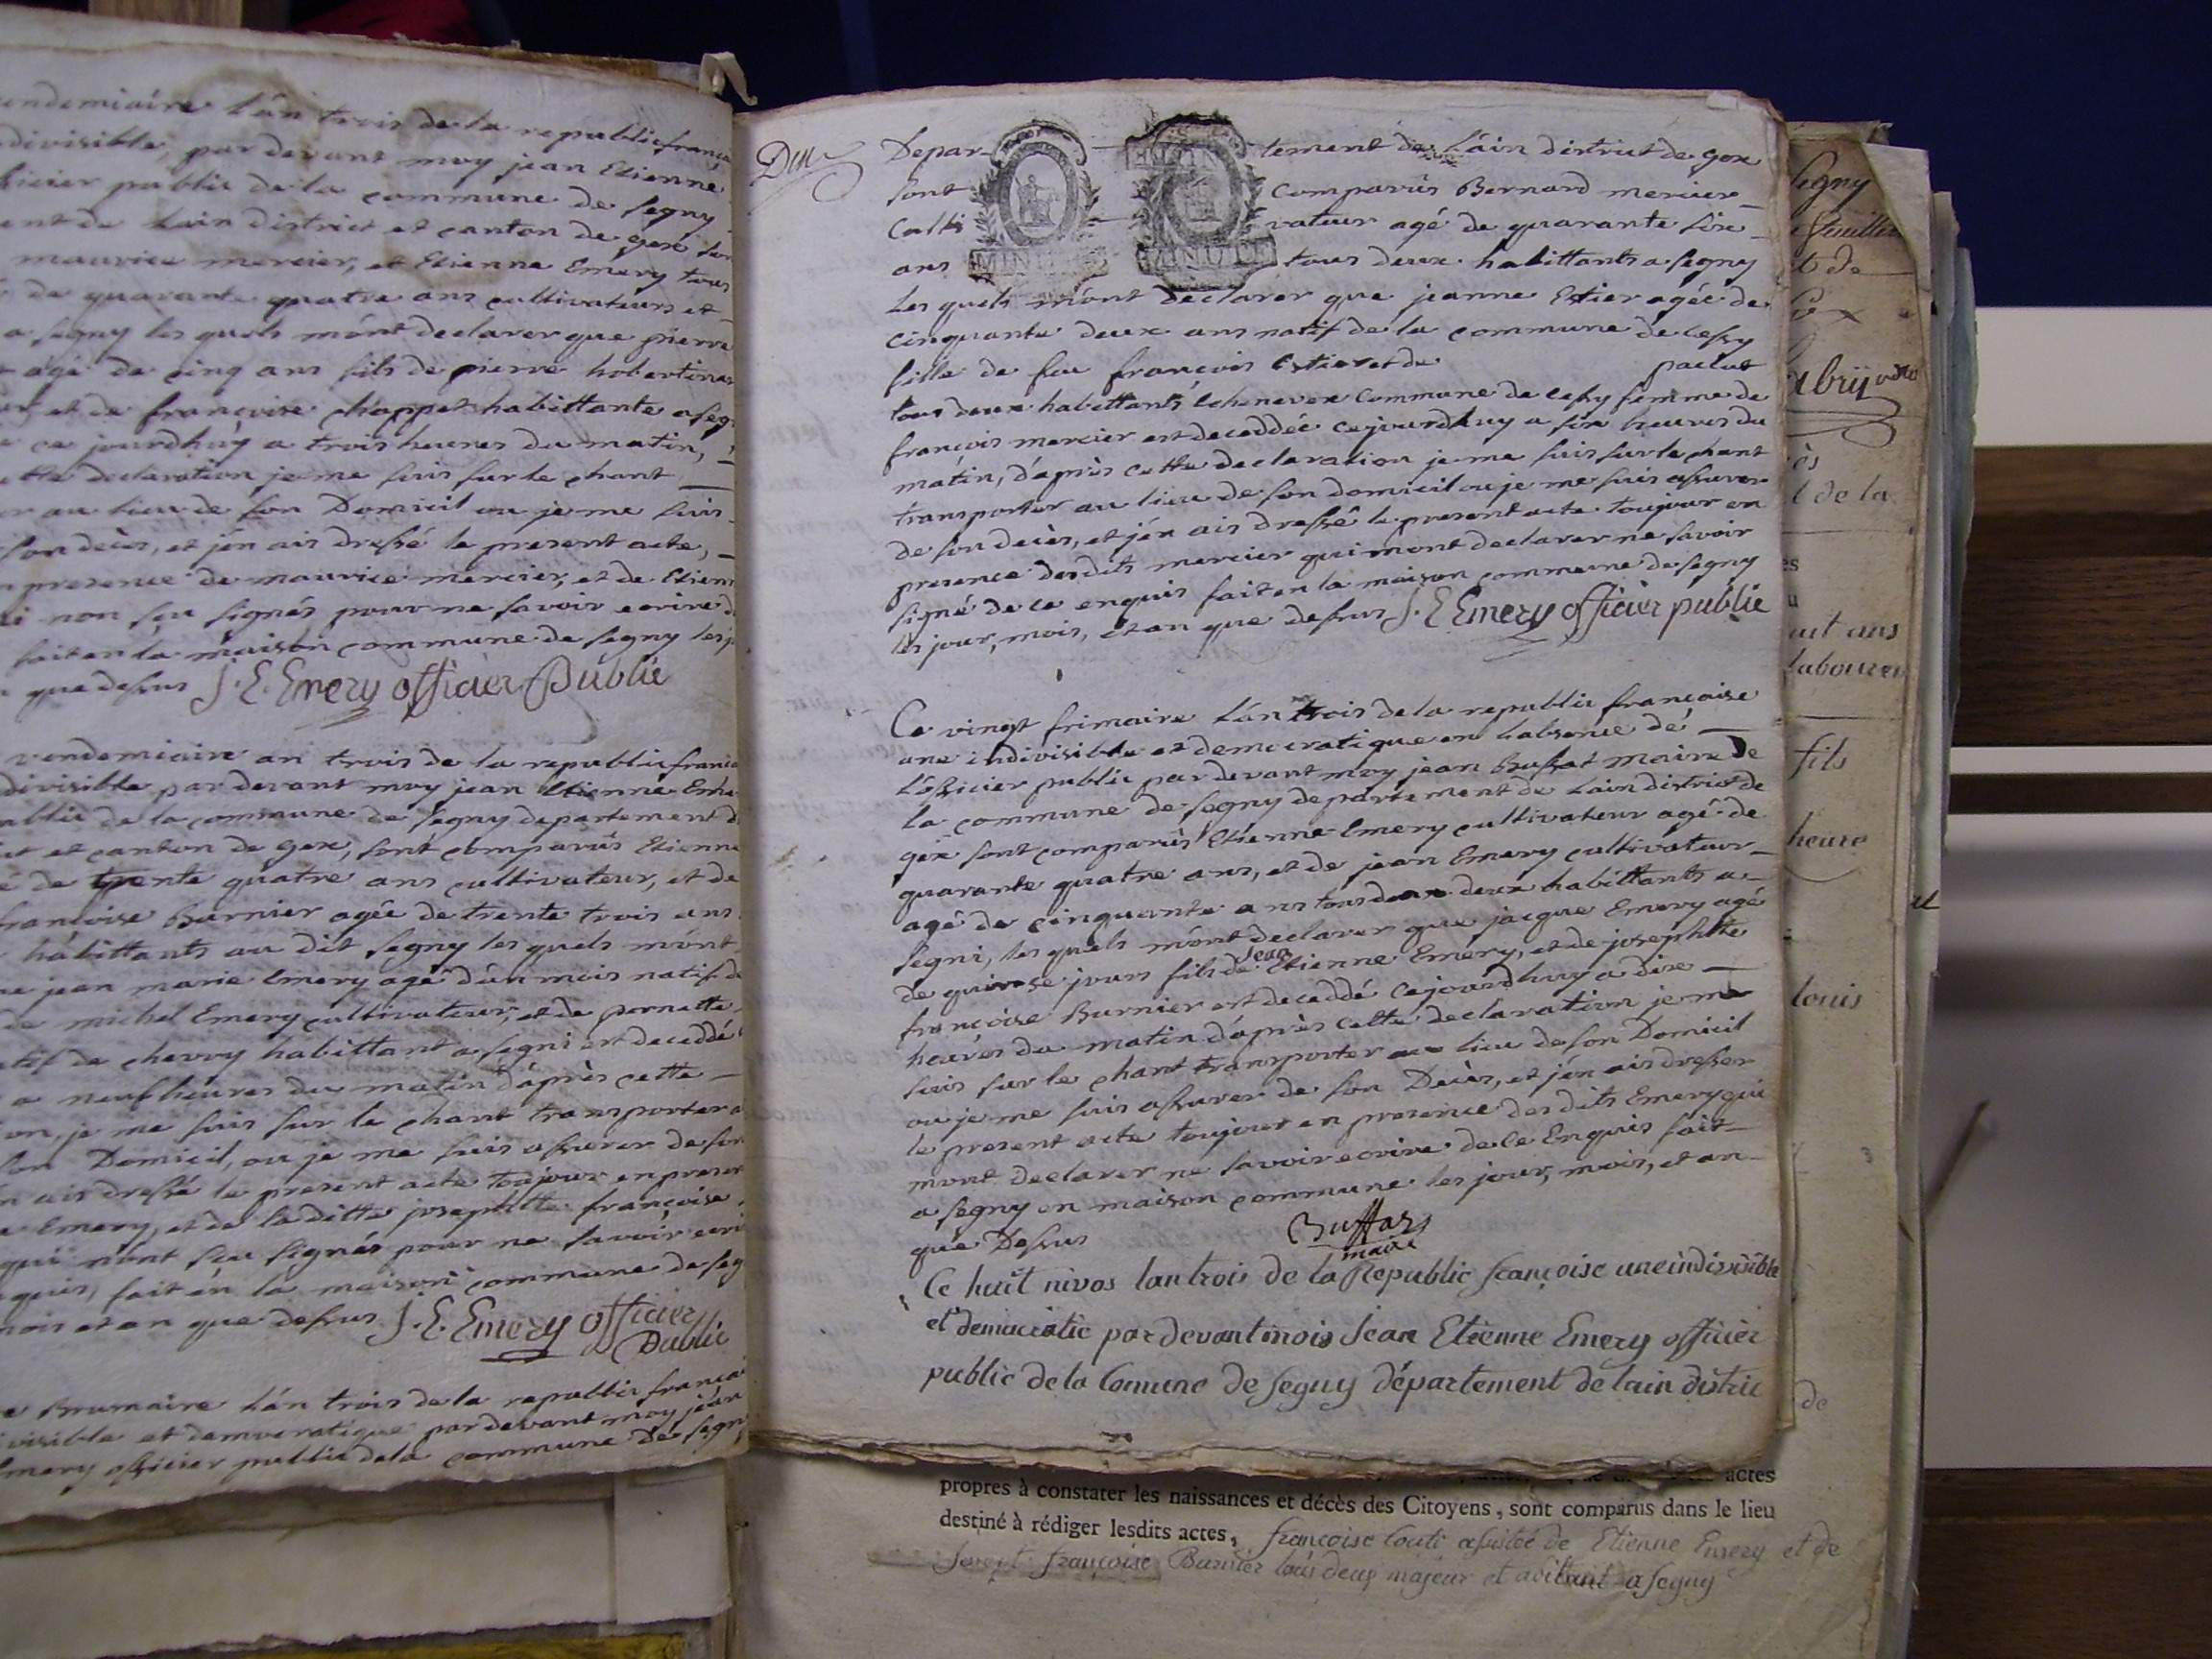 endemiaire l'an trois de la republic franca
divisible, par devant moy jean Etienne
ficier public de la commune de segny
ent de Lain district et canton de gex son
maurice mercier, et Etienne Emery tous
de quarante quatre ans cultivateurs et
a segny les quels m'ont declarer que pierre
agé de cinq ans fils de pierre
et de françoise chappet habittante a seg
ce jourdhuy a trois heures du matin,
tte declaration je me suis sur le chant
r au lieu de son Domicil ou je me suis
son decès, et j'en ais dressé le present acte,
presence de maurice mercier, et de Etien
i non seu signés pour ne savoir ecrire d
fait en la maison commune de segny les j
que dessus J. E. Emery officier Public
vendemiaire an trois de la republic franca
divisible par devant moy jean Etienne Eme
ublic de la commune de segny departement d
ict et canton de gex, sont comparûs Etienne
é de trente quatre ans cultivateur, et de
françoise Burnier agée de trente trois ans
habittants au dit segny les quels m'ont
ue jean marie Emery agé d'un mois natif d
de michel Emery cultivateur, et de pernette
atif de chevry habittant a segni est deceddé
a neuf heures du matin d'après cette
on, je me suis sur le chant transporter a
son Domicil, ou je me suis assurer de son
n ais dressé le present acte toujour en presen
e Emery, et de laditte josephtte françoise
qui n'ont seu signés pour ne savoir ecri
quis, fait en la maison commune de seg
mois et an que dessus J. E. Emery officier
Public
e Brumaire l'an trois de la republic franca
ivisible et democratique par devant moy jean
Emery officier public de la commune de segn
Depar- tement de Lain district de gex
sont comparûs Bernard mercier
Culti vateur agé de quarante six
ans tous deux habittants a segny
MINUTE MINUTE
les quels m'ont declarer que jeanne Estier agée de
cinquante deux ans natif de la commune de cessy
fille de feu françois Estier et de paclut
tous deux habittants Echenevex Commune de cessy femme de
françois mercier est deceddée cejourdhuy a six heures du
matin, d'après cette declaration je me suis sur le chant
transporter au lieu de son domicil ou je me suis assurer
de son decès, et j'en ais dressé le present acte toujour en
presence desdits mercier qui m'ont declarer ne savoir
signé de ce enquis fait en la maison commune de segny
les jour, mois, et an que dessus J. E Emery officier public
Ce vingt frimaire L'an trois de la republic françoise
une indivisible et democratique en labsence de
L'officier public par devant moy jean Buffat maire De
la commune de segny departement de Lain district de
gex sont comparûs Etienne Emery cultivateur agé de
quarante quatre ans, et de jean Emery cultivateur
agé de cinquante ans tous deux habittants a
segni, les quels m'ont declarer que jacque Emery agé
de quinse jours fils de jean Etienne Emery, et de josephtte
françoise Burnier est deceddé cejourdhuy a dix
heures du matin d'après cette declaration je me
suis sur le chant transporter au lieu de son Domicil
ou je me suis assurer de son Decès, et j'en ais dresser
le present acte toujour en presence desdits Emery qui
m'ont declarer ne savoir ecrire de ce Enquis fait
a segny en maison commune les jour, mois, et an
que Dessus Buffat
maire
Ce huit nivos lan trois de la Republic françoise une indivisible
et democratic par devant mois Jean Etienne Emery officier
public de la Comune de segny département de lain distric
actes
propres à constater les naissances et décès des Citoyens, sont comparus dans le lieu
destiné à rédiger lesdits actes, françoise assitée de Etienne Emery et de
françoise Burnier tous deux majeur et abitant a segny
segny
et de
Gex
l de la
ans
laboureu
fils
heure
louis
de